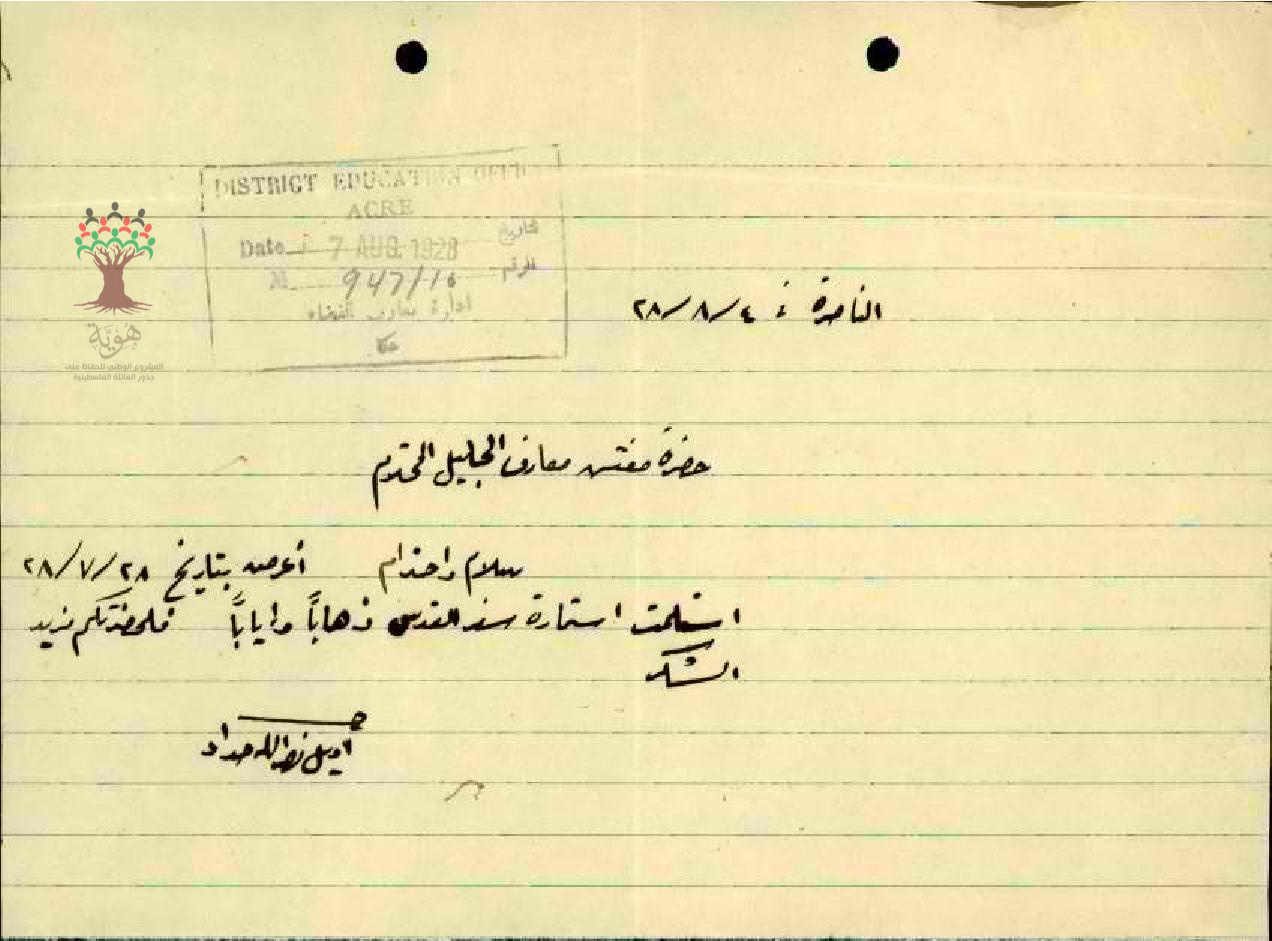 DISTRICT EDUCATION OFFICE
ACRE
Date 7 AUG. 1928 تاريخ
No. 947/16 الرقم
ادارة معارف القضاء
عكا
هُويَّة
المشروع الوطني للحفاظ على
جذور العائلة الفلسطينية
الناصرة في ٤/٨/٢٨
حضرة مفتش معارف الجليل المحترم
سلام واحترام أعرض بتاريخ ٢٨/٧/٢٨
استلمت استمارة سفر القدس ذهاباً واياباً فلحضرتكم مزيد
الشكر
نصرالله حداد